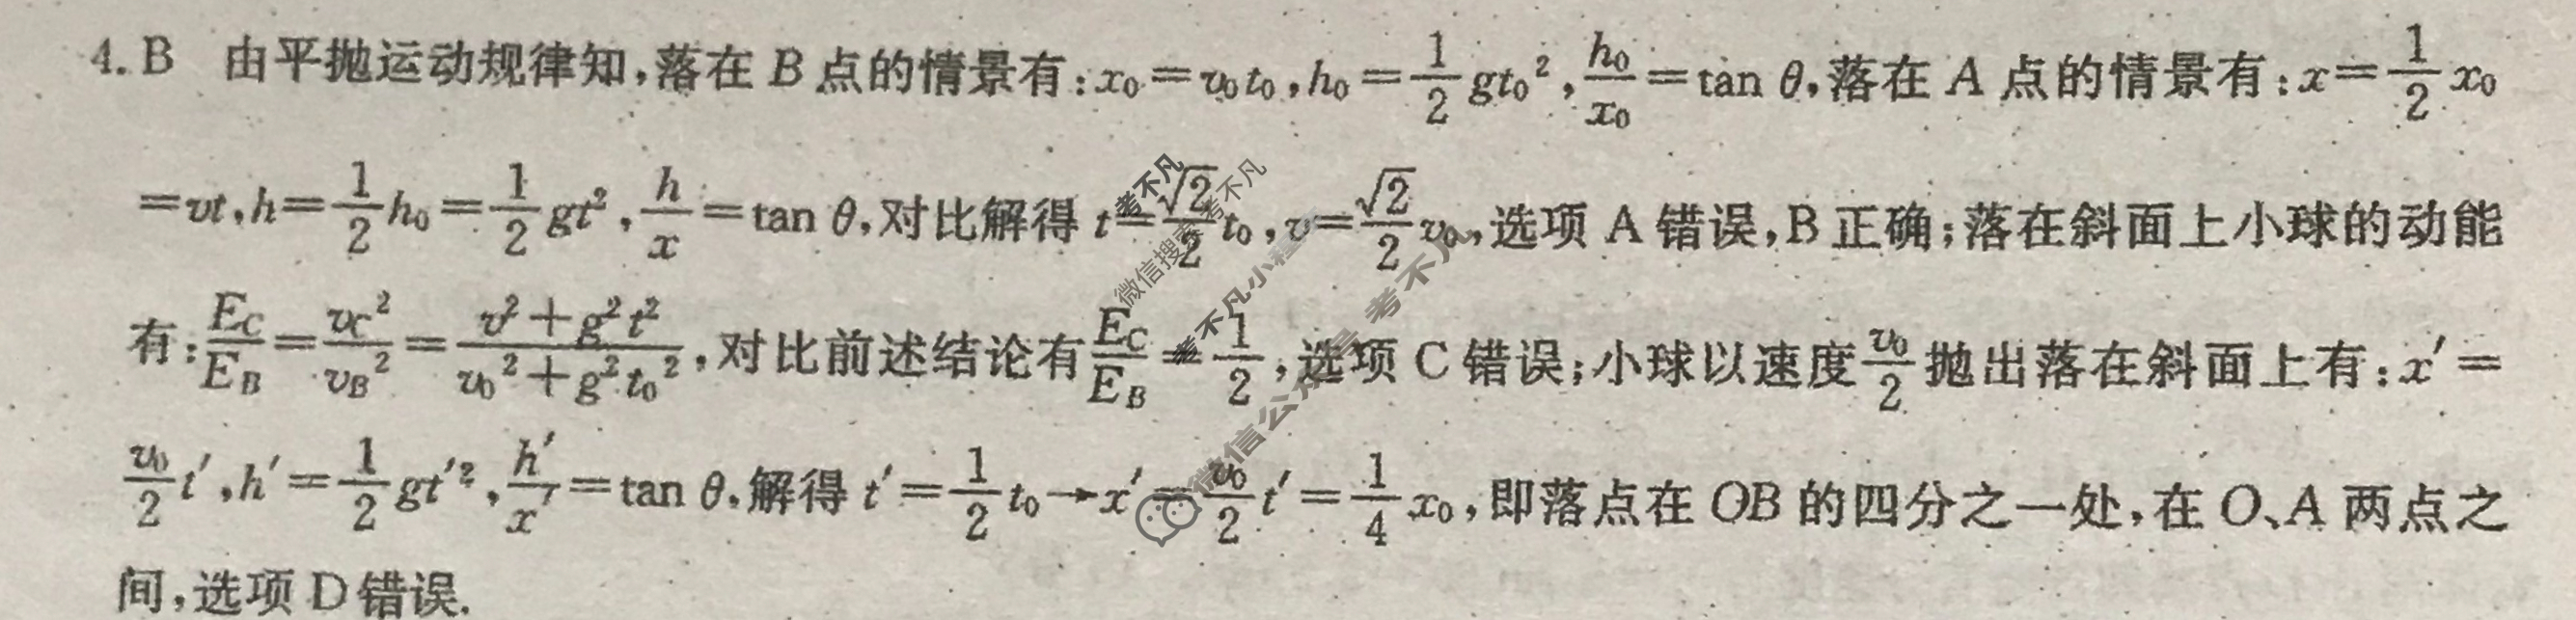 4. B 由平抛运动规律知,落在 B 点的情景有:x₀=v₀t₀,h₀=1/2 gt₀²,h₀/x₀=tan θ,落在 A 点的情景有:x=1/2 x₀
=vt,h=1/2 h₀=1/2 gt²,h/x=tan θ,对比解得 t=√2/2 t₀,v=√2/2 v₀,选项 A 错误,B 正确;落在斜面上小球的动能
有:E_C/E_B=v_C²/v_B²=(v²+g²t²)/(v₀²+g²t₀²),对比前述结论有 E_C/E_B=1/2,选项 C 错误;小球以速度 v₀/2 抛出落在斜面上有:x′=
v₀/2 t′,h′=1/2 gt′²,h′/x′=tan θ,解得 t′=1/2 t₀→x′=v₀/2 t′=1/4 x₀,即落点在 OB 的四分之一处,在 O、A 两点之
间,选项 D 错误.
考不凡
考不凡
微信搜索
考不凡小程序
微信公众号 考不凡